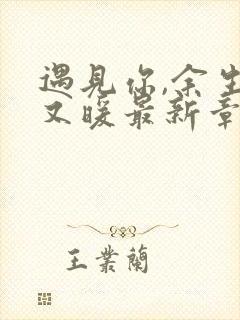 遇見你,余生
又暖最新章
王業蘭